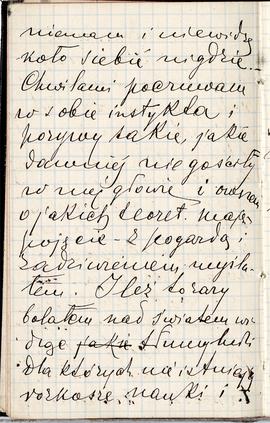 niemam i niewidzę
koło siebie nigdzie.—
Chwilami poczuwam
w sobie instykta i
porywy takie, jakie
dawniej nie gościły
w mej głowie i
o jakich teoret. mają
pojęcie - z pogardą i
zadziwieniem myśla-
łem. Ileż to razy
bolałem nad światem wi-
dząc jaka
dla których nie istnieją
rozkosze nauki i